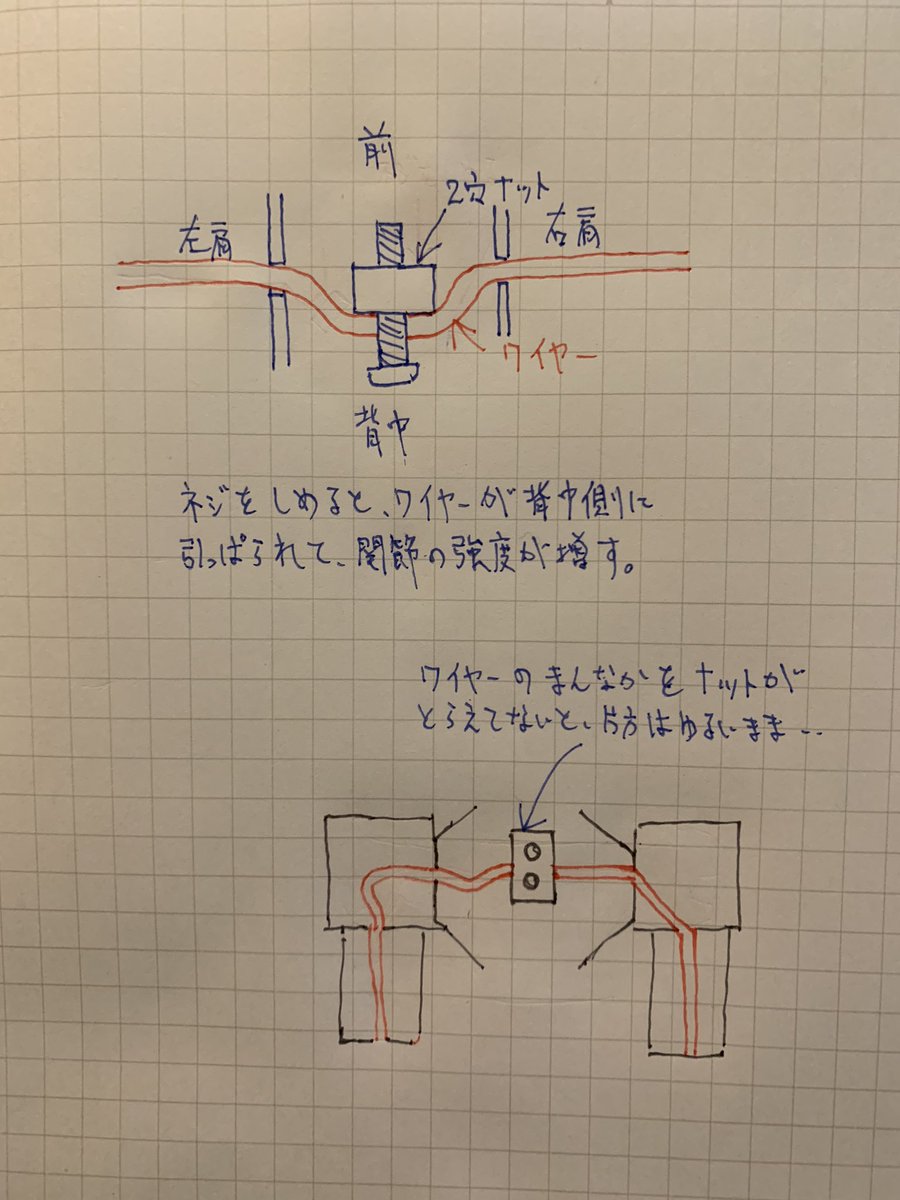 前
2穴ナット
左肩
右肩
ワイヤー
背中
ネジをしめると、ワイヤーが背中側に
引っぱられて、関節の強度が増す。
ワイヤーのまんなかをナットが
とらえてないと、片方はゆるいまま…